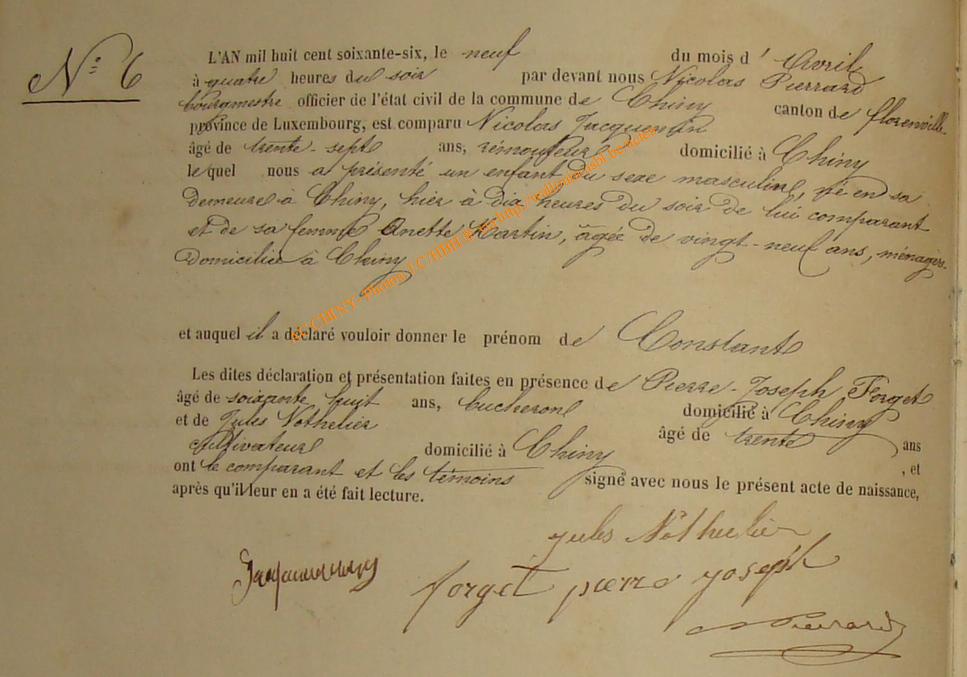 N° 6
L'AN mil huit cent soixante-six, le neuf du mois d' Avril
à quatre heures du soir par devant nous Nicolas Pierrard
bourgmestre officier de l'état civil de la commune de Chiny canton de florenville
province de Luxembourg, est comparu Nicolas Jacquemin
âgé de trente-sept ans, rémouleur domicilié à Chiny
lequel nous a présenté un enfant du sexe masculin, né en sa
demeure à Chiny, hier à dix heures du soir de lui comparant
et de sa femme Anette Martin, âgée de vingt-neuf ans, ménagère
domiciliée à Chiny
et auquel il a déclaré vouloir donner le prénom de Constant
Les dites déclaration et présentation faites en présence de Pierre-Joseph Forget
âgé de soixante huit ans, bucheron domicilié à Chiny
et de Jules Nothelier âgé de trente ans
cultivateur domicilié à Chiny , et
ont le comparant et les témoins signé avec nous le présent acte de naissance,
après qu'il leur en a été fait lecture.
jules Nothelier
forget pierre joseph
Pierrard